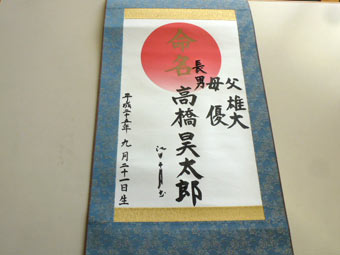 命名
父 雄大
母 優
長男
高橋昊太郎
平成二十五年 九月二十一日生